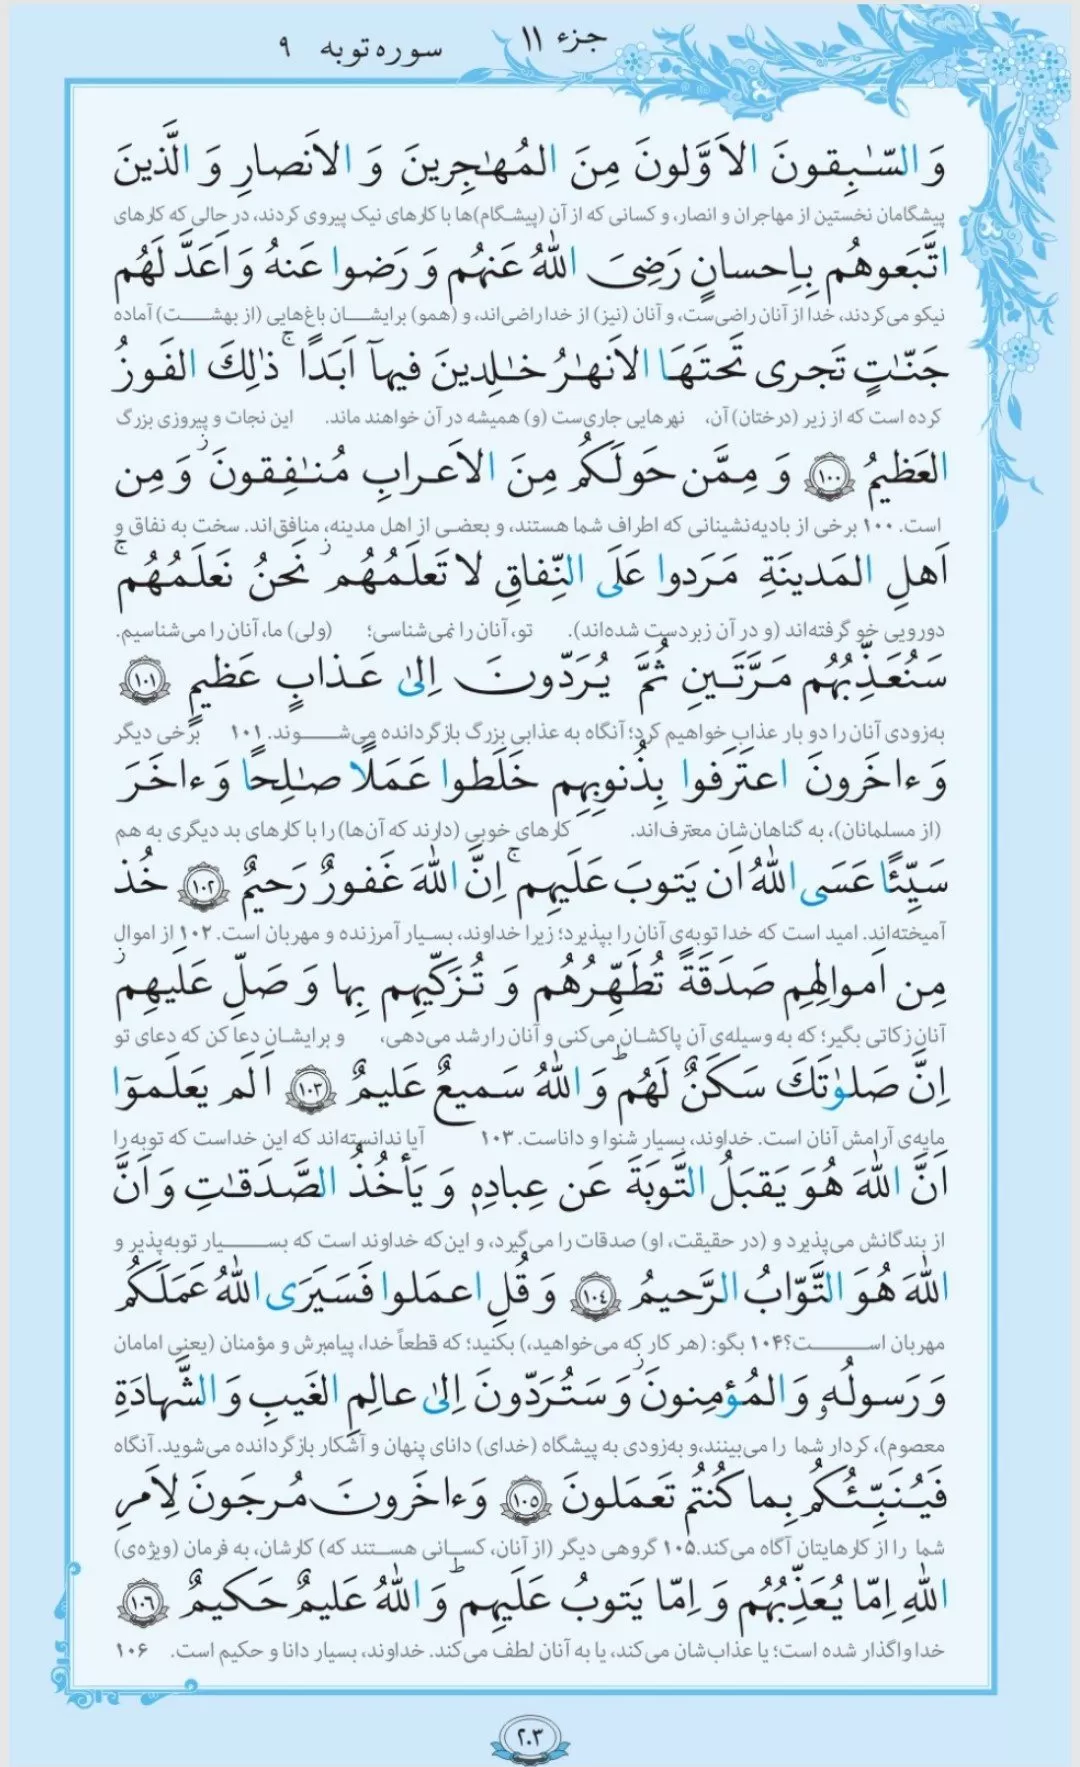 جزء ۱۱
سوره توبه ۹
وَ السّٰبِقونَ الاَوَّلونَ مِنَ المُهٰجِرینَ وَ الاَنصارِ وَ الَّذینَ
پیشگامان نخستین از مهاجران و انصار، و کسانی که از آن (پیشگام)ها با کارهای نیک پیروی کردند، در حالی که کارهای
اتَّبَعوهُم بِاِحسانٍ رَضِیَ اللهُ عَنهُم وَ رَضوا عَنهُ وَ اَعَدَّ لَهُم
نیکو می‌کردند، خدا از آنان راضی‌ست، و آنان (نیز) از خدا راضی‌اند، و (همو) برایشان باغ‌هایی (از بهشت) آماده
جَنّٰتٍ تَجری تَحتَهَا الاَنهٰرُ خٰلِدینَ فیهآ اَبَدًا ۚ ذٰلِكَ الفَوزُ
کرده است که از زیر (درختان) آن، نهرهایی جاری‌ست (و) همیشه در آن خواهند ماند. این نجات و پیروزی بزرگ
العَظیمُ ﴿۱۰۰﴾ وَ مِمَّن حَولَكُم مِنَ الاَعرابِ مُنٰفِقونَ ز وَ مِن
است. ۱۰۰ برخی از بادیه‌نشینانی که اطراف شما هستند، و بعضی از اهل مدینه، منافق‌اند. سخت به نفاق و
اَهلِ المَدینَةِ مَرَدوا عَلَى النِّفاقِ لا تَعلَمُهُم ز نَحنُ نَعلَمُهُم ۚ
دورویی خو گرفته‌اند (و در آن زبردست شده‌اند). تو، آنان را نمی‌شناسی؛ (ولی) ما، آنان را می‌شناسیم.
سَنُعَذِّبُهُم مَرَّتَینِ ثُمَّ یُرَدّونَ اِلىٰ عَذابٍ عَظیمٍ ﴿۱۰۱﴾
به‌زودی آنان را دو بار عذاب خواهیم کرد؛ آنگاه به عذابی بزرگ بازگردانده می‌شوند. ۱۰۱ برخی دیگر
وَ ءاخَرونَ اعتَرَفوا بِذُنوبِهِم خَلَطوا عَمَلًا صٰلِحًا وَ ءاخَرَ
(از مسلمانان)، به گناهان‌شان معترف‌اند. کارهای خوبی (دارند که آن‌ها) را با کارهای بد دیگری به هم
سَیِّئًا عَسَى اللهُ اَن یَتوبَ عَلَیهِم ۚ اِنَّ اللهَ غَفورٌ رَحیمٌ ﴿۱۰۲﴾ خُذ
آمیخته‌اند. امید است که خدا توبه‌ی آنان را بپذیرد؛ زیرا خداوند، بسیار آمرزنده و مهربان است. ۱۰۲ از اموال
مِن اَموالِهِم صَدَقَةً تُطَهِّرُهُم وَ تُزَكّیهِم بِها وَ صَلِّ عَلَیهِم ز
آنان زکاتی بگیر؛ که به وسیله‌ی آن پاکشان می‌کنی و آنان را رشد می‌دهی، و برایشان دعا کن که دعای تو
اِنَّ صَلوٰتَكَ سَكَنٌ لَهُم ط وَ اللهُ سَمیعٌ عَلیمٌ ﴿۱۰۳﴾ اَلَم یَعلَموٓا
مایه‌ی آرامش آنان است. خداوند، بسیار شنوا و داناست. ۱۰۳ آیا ندانسته‌اند که این خداست که توبه را
اَنَّ اللهَ هُوَ یَقبَلُ التَّوبَةَ عَن عِبادِهٖ وَ یَأخُذُ الصَّدَقٰتِ وَ اَنَّ
از بندگانش می‌پذیرد و (در حقیقت، او) صدقات را می‌گیرد، و این‌که خداوند است که بسیار توبه‌پذیر و
اللهَ هُوَ التَّوّابُ الرَّحیمُ ﴿۱۰۴﴾ وَ قُلِ اعمَلوا فَسَیَرَى اللهُ عَمَلَكُم
مهربان است؟ ۱۰۴ بگو: (هر کار که می‌خواهید،) بکنید؛ که قطعاً خدا، پیامبرش و مؤمنان (یعنی امامان
وَ رَسولُهٗ وَ المُؤمِنونَ ز وَ سَتُرَدّونَ اِلىٰ عالِمِ الغَیبِ وَ الشَّهادَةِ
معصوم)، کردار شما را می‌بینند، و به‌زودی به پیشگاه (خدای) دانای پنهان و آشکار بازگردانده می‌شوید. آنگاه
فَیُنَبِّئُكُم بِما كُنتُم تَعمَلونَ ﴿۱۰۵﴾ وَ ءاخَرونَ مُرجَونَ لِاَمرِ
شما را از کارهایتان آگاه می‌کند. ۱۰۵ گروهی دیگر (از آنان، کسانی هستند که) کارشان، به فرمان (ویژه‌ی)
اللهِ اِمّا یُعَذِّبُهُم وَ اِمّا یَتوبُ عَلَیهِم ط وَ اللهُ عَلیمٌ حَكیمٌ ﴿۱۰۶﴾
خدا واگذار شده است؛ یا عذاب‌شان می‌کند، یا به آنان لطف می‌کند. خداوند، بسیار دانا و حکیم است. ۱۰۶
۲۰۳